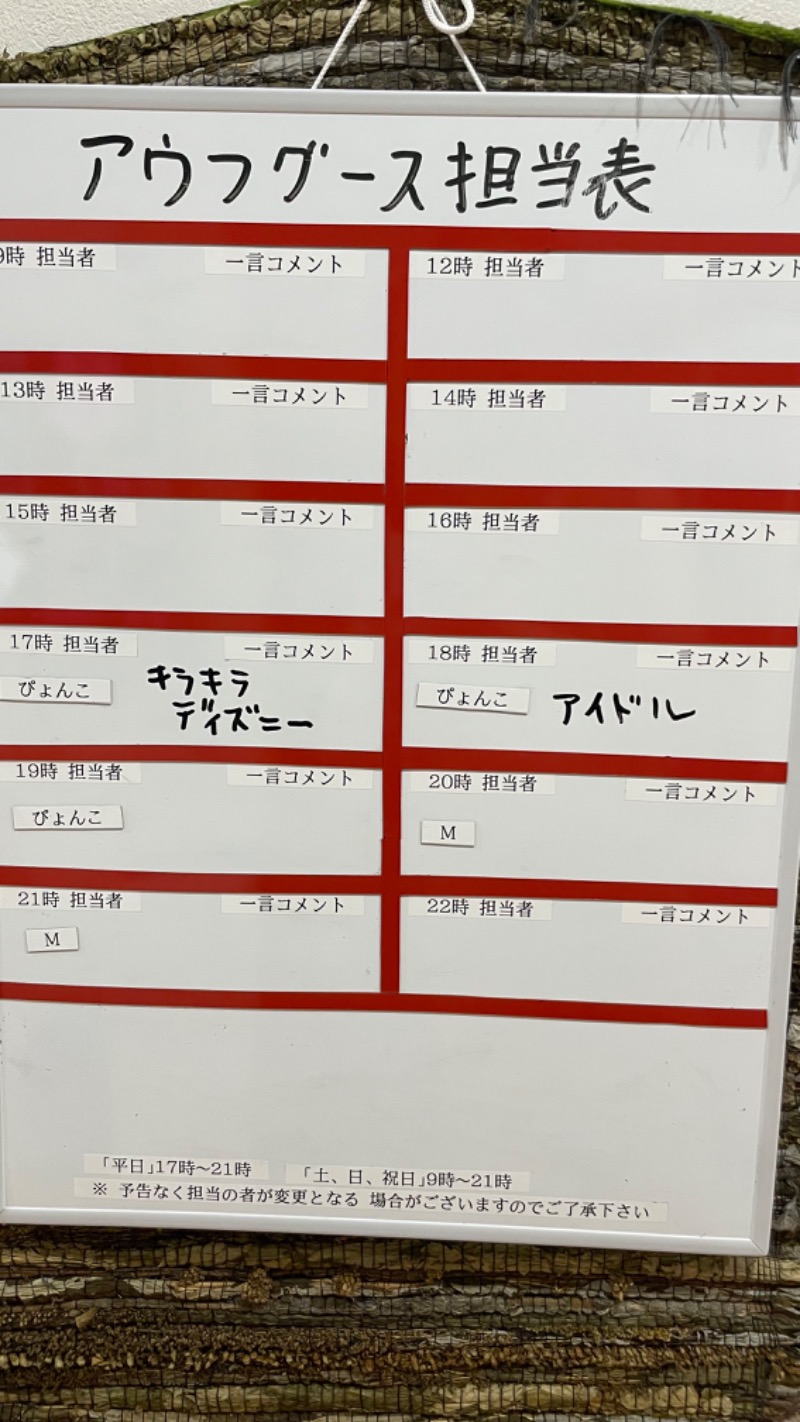 アウフグース担当表
9時 担当者 一言コメント
12時 担当者 一言コメント
13時 担当者 一言コメント
14時 担当者 一言コメント
15時 担当者 一言コメント
16時 担当者 一言コメント
17時 担当者 一言コメント
ぴょんこ キラキラ
ディズニー
18時 担当者 一言コメント
ぴょんこ アイドル
19時 担当者 一言コメント
ぴょんこ
20時 担当者 一言コメント
M
21時 担当者 一言コメント
M
22時 担当者 一言コメント
「平日」17時〜21時 「土、日、祝日」9時〜21時
※ 予告なく担当の者が変更となる 場合がございますのでご了承下さい